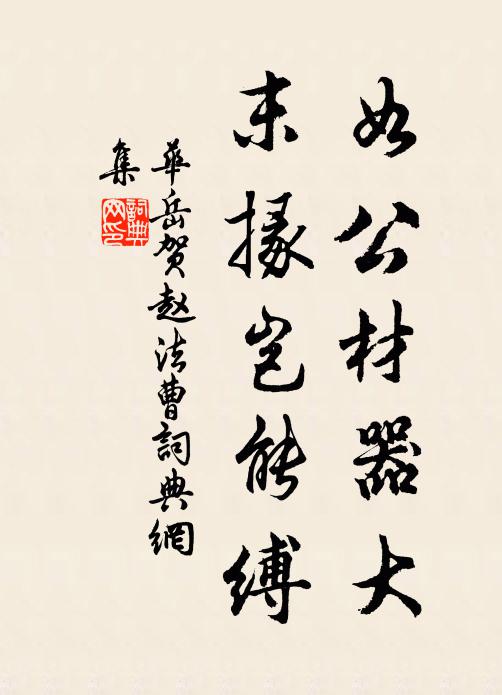 如公材器大
末掾岂能縛
華岳贺赵法曹詞典網
集
詞典网印